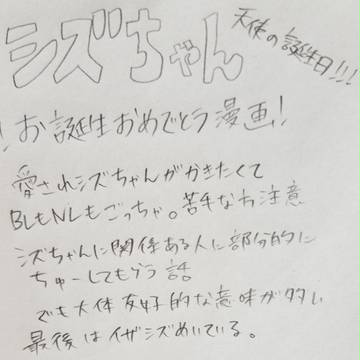 シズちゃん
天使の誕生日!!!
!お誕生おめでとう漫画!
愛されシズちゃんがかきたくて
BLもNLもごっちゃ。苦手な方注意
シズちゃんに関係ある人に部分的に
ちゅーしてもらう話
でも大体友好的な意味が多い
最後はイザシズめいている。